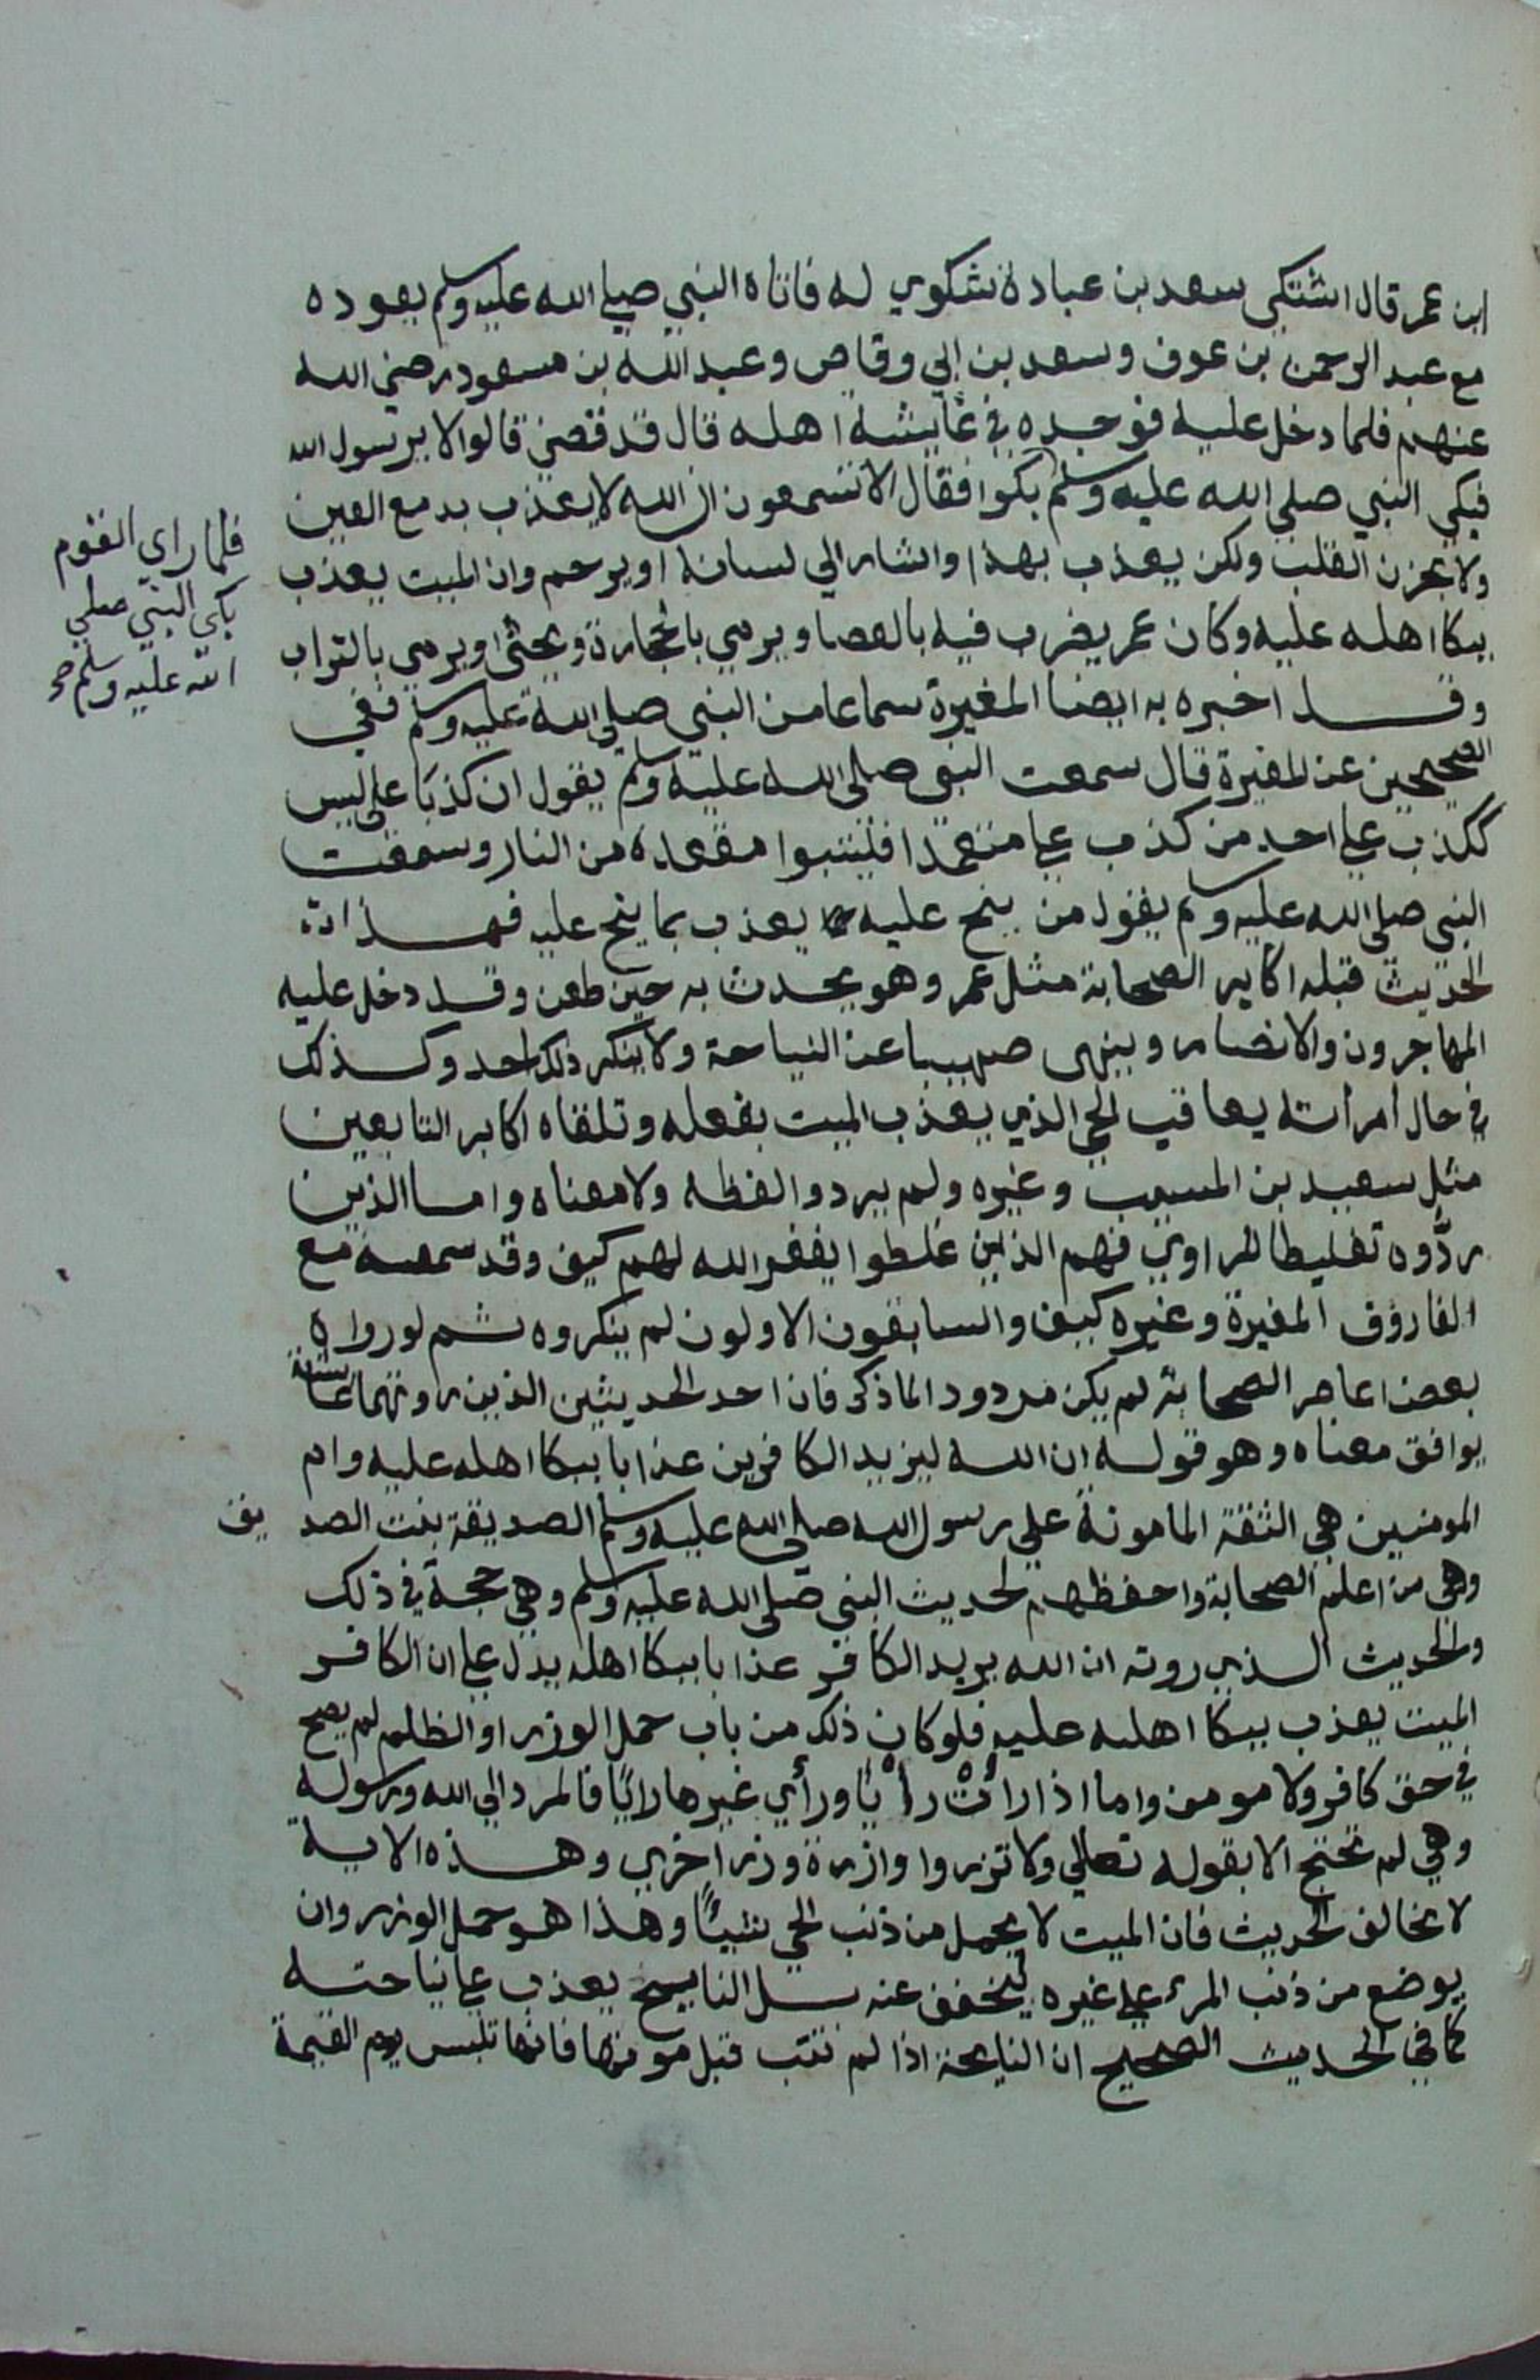 ابن عمر قال اشتكى سعد بن عبادة شكوي له فاتاه النبي صلي الله عليه وسلم يعوده
مع عبد الرحمن بن عوف وسعد بن ابي وقاص وعبد الله بن مسعود رضي الله
عنهم فلما دخل عليه فوجده في غايشة اهله قال قد قضي قالوا لا يرسول الله
فبكي النبي صلي الله عليه وسلم بكوا فقال الا تسمعون ان الله لا يعذب بدمع العين
فلما راي القوم
بكي النبي صلي
الله عليه وسلم صح
ولا بحزن القلب ولكن يعذب بهذا واشار الي لسانه او يرحم وان الميت يعذب
ببكا اهله عليه وكان عمر يضرب فيه بالعصا ويرمي بالحجارة ويحثى او يرمي بالتراب
وقد اخبره به ايضا المغيرة سماعا من النبي صلي الله عليه وسلم ففي
الصحيحين عن المغيرة قال سمعت النبي صلى الله عليه وسلم يقول ان كذبا علي ليس
ككذب علي احد من كذب علي متعمدا فليتبوا مقعده من النار وسمعت
النبي صلى الله عليه وسلم يقول من ينح عليه يعذب بما ينح عليه فهذا
الحديث قبله اكابر الصحابة مثل عمر وهو يحدث به حين طعن وقد دخل عليه
المهاجرون والانصار وينهى صهيبا عن النياحة ولا ينكر ذلك احد وكذلك
في حال امراته يعاقب الحي الذي يعذب الميت بفعله وتلقاه اكابر التابعين
مثل سعيد بن المسيب وغيره ولم يردوا لفظه ولا معناه واما الذين
ردّوه تغليطا للراوي فهم الذين غلطوا يغفر الله لهم كيف وقد سمعه مع
الفاروق المغيرة وغيره كيف والسابقون الاولون لم ينكروه ثم لو رواه
بعض اعاصر الصحابة لم يكن مردودا لما ذكر فان احد الحديثين الذين روتهما عائشة
يوافق معناه وهو قوله ان الله ليزيد الكافرين عذابا ببكا اهله عليه وام
المومنين هي الثقة المامونة علي رسول الله صلى الله عليه وسلم الصديقة بنت الصديق
وهي من اعلم الصحابة واحفظهم لحديث النبي صلى الله عليه وسلم وهي حجة في ذلك
والحديث الذي روته ان الله يريد الكافر عذابا ببكا اهله يدل علي ان الكافر
الميت يعذب ببكا اهله عليه فلو كان ذلك من باب حمل الوزر او الظلم لم يصح
في حق كافر ولا مومن واما اذا رات رأيا ورأي غيرها رايًا فالمرد الي الله ورسوله
وهي لم تحتج الا بقوله تعالي ولا تزروا وازرة وزر اخري وهذه الاية
لا تخالف الحديث فان الميت لا يحمل من ذنب الحي شيئًا وهذا هو حمل الوزر وان
يوضع من ذنب المرء علي غيره ليخفف عنه بل النايح يعذب علي نياحته
كما في الحديث الصحيح ان النايحة اذا لم تتب قبل موتها فانها تلبس يوم القيمة